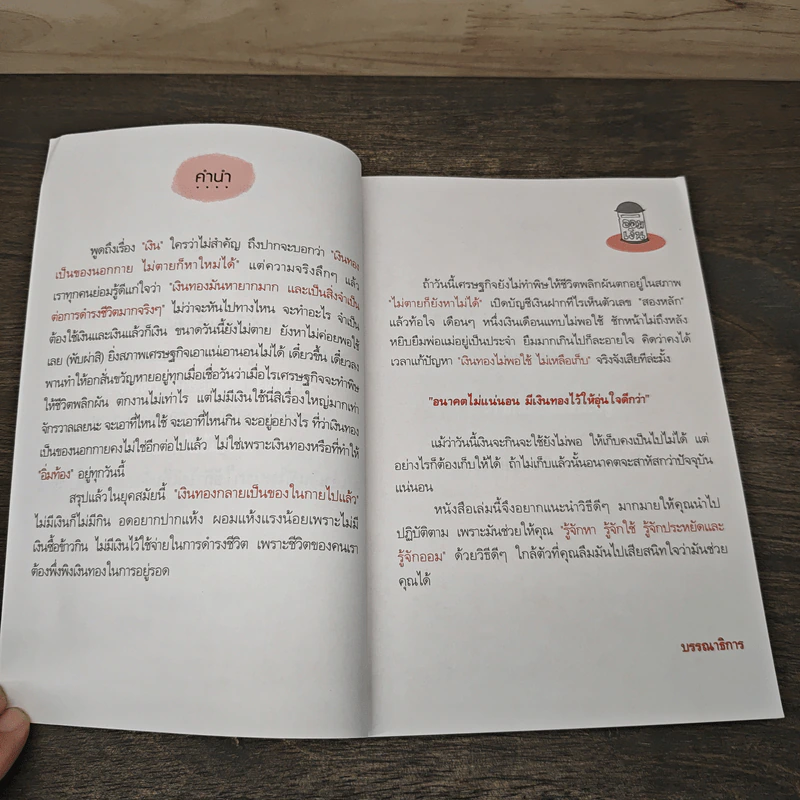 คำนำ
พูดถึงเรื่อง "เงิน" ใครว่าไม่สำคัญ ถึงปากจะบอกว่า "เงินทอง
เป็นของนอกกาย ไม่ตายก็หาใหม่ได้" แต่ความจริงลึกๆ แล้ว
เราทุกคนย่อมรู้ดีแก่ใจว่า "เงินทองมันหายากมาก และเป็นสิ่งจำเป็น
ต่อการดำรงชีวิตมากจริงๆ" ไม่ว่าจะหันไปทางไหน จะทำอะไร จำเป็น
ต้องใช้เงินและเงินแล้วก็เงิน ขนาดวันนี้ยังไม่ตาย ยังหาไม่ค่อยพอใช้
เลย (พับผ่าสิ) ยิ่งสภาพเศรษฐกิจเอาแน่เอานอนไม่ได้ เดี๋ยวขึ้น เดี๋ยวลง
พานทำให้อกสั่นขวัญหายอยู่ทุกเมื่อเชื่อวันว่าเมื่อไรเศรษฐกิจจะทำพิษ
ให้ชีวิตพลิกผัน ตกงานไม่เท่าไร แต่ไม่มีเงินใช้นี่สิเรื่องใหญ่มากเท่า
จักรวาลเลยนะ จะเอาที่ไหนใช้ จะเอาที่ไหนกิน จะอยู่อย่างไร ที่ว่าเงินทอง
เป็นของนอกกายคงไม่ใช่อีกต่อไปแล้ว ไม่ใช่เพราะเงินทองหรือที่ทำให้
"อิ่มท้อง" อยู่ทุกวันนี้
สรุปแล้วในยุคสมัยนี้ "เงินทองกลายเป็นของในกายไปแล้ว"
ไม่มีเงินก็ไม่มีกิน อดอยากปากแห้ง ผอมแห้งแรงน้อยเพราะไม่มี
เงินซื้อข้าวกิน ไม่มีเงินไว้ใช้จ่ายในการดำรงชีวิต เพราะชีวิตของคนเรา
ต้องพึ่งพิงเงินทองในการอยู่รอด
ออม
เงิน
ถ้าวันนี้เศรษฐกิจยังไม่ทำพิษให้ชีวิตพลิกผันตกอยู่ในสภาพ
"ไม่ตายก็ยังหาไม่ได้" เปิดบัญชีเงินฝากทีไรเห็นตัวเลข "สองหลัก"
แล้วท้อใจ เดือนๆ หนึ่งเงินเดือนแทบไม่พอใช้ ชักหน้าไม่ถึงหลัง
หยิบยืมพ่อแม่อยู่เป็นประจำ ยืมมากเกินไปก็ละอายใจ คิดว่าคงได้
เวลาแก้ปัญหา "เงินทองไม่พอใช้ ไม่เหลือเก็บ" จริงจังเสียทีล่ะมั้ง
"อนาคตไม่แน่นอน มีเงินทองไว้ให้อุ่นใจดีกว่า"
แม้ว่าวันนี้เงินจะกินจะใช้ยังไม่พอ ให้เก็บคงเป็นไปไม่ได้ แต่
อย่างไรก็ต้องเก็บให้ได้ ถ้าไม่เก็บแล้วนั้นอนาคตจะสาหัสกว่าปัจจุบัน
แน่นอน
หนังสือเล่มนี้จึงอยากแนะนำวิธีดีๆ มากมายให้คุณนำไป
ปฏิบัติตาม เพราะมันช่วยให้คุณ "รู้จักหา รู้จักใช้ รู้จักประหยัดและ
รู้จักออม" ด้วยวิธีดีๆ ใกล้ตัวที่คุณลืมมันไปเสียสนิทใจว่ามันช่วย
คุณได้
บรรณาธิการ